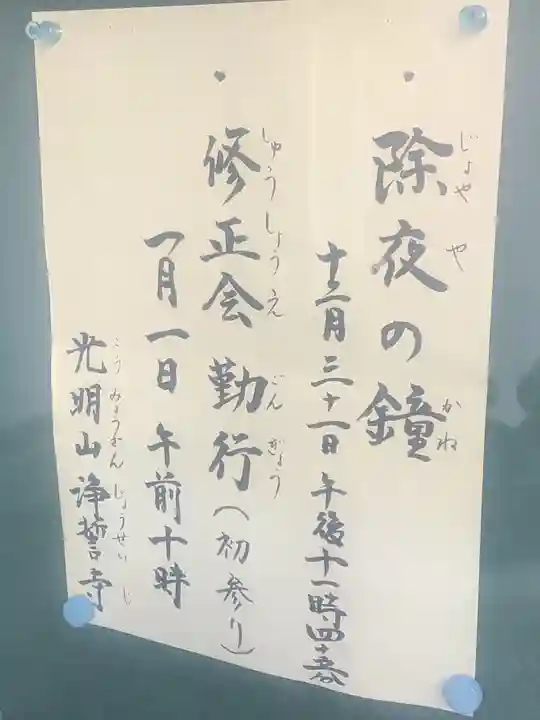 ・除夜の鐘
じょや や かね
十二月三十一日 午後十一時四十五分
・修正会 勤行(初参り)
しゅうしょうえ ごんぎょう
一月一日 午前十時
光明山 浄誓寺
こうみょうさん じょうせいじ